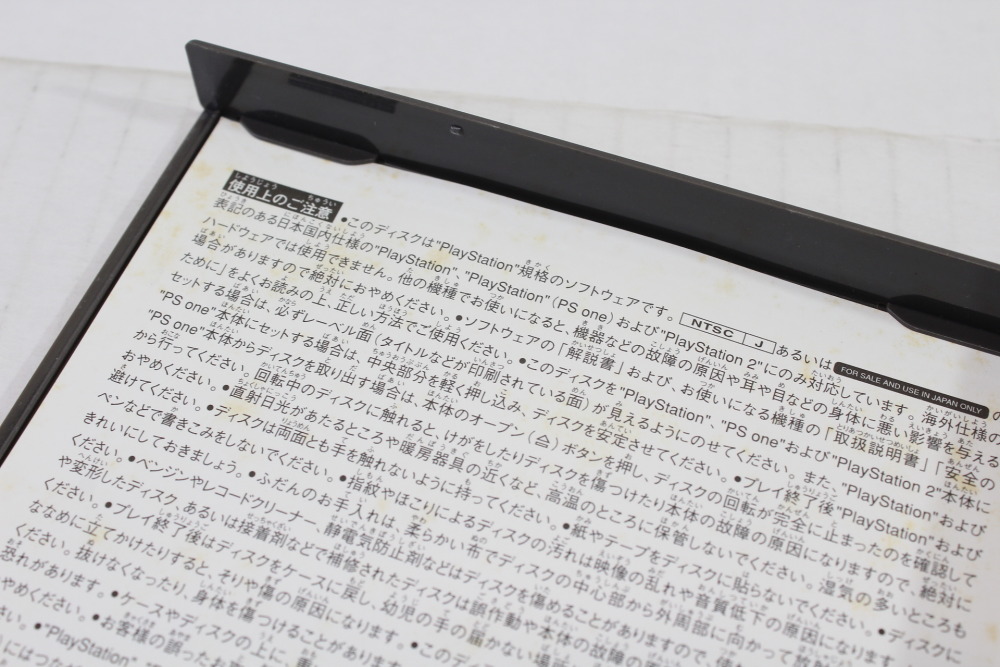 使用上のご注意 •このディスクは"PlayStation"規格のソフトウェアです。 NTSC J あるいは FOR SALE AND USE IN JAPAN ONLY
表記のある日本国内仕様の"PlayStation"、"PlayStation"(PS one)および"PlayStation 2"にのみ対応しています。海外仕様の
ハードウェアでは使用できません。他の機種でお使いになると、機器などの故障の原因や耳や目などの身体に悪い影響を与える
場合がありますので絶対におやめください。•ソフトウェアの「解説書」および、お使いになる機種の「取扱説明書」「安全の
ために」をよくお読みの上、正しい方法でご使用ください。•このディスクを"PlayStation"、"PS one"および"PlayStation 2"本体に
セットする場合は、必ずレーベル面(タイトルなどが印刷されている面)が見えるようにのせてください。また、"PlayStation"および
"PS one"本体にセットする場合は、中央部分を軽く押し込み、ディスクを安定させてください。•プレイ終了後"PlayStation"および
"PS one"本体からディスクを取り出す場合は、本体のオープン(≙)ボタンを押し、ディスクの回転が完全に止まったのを確認して
から行ってください。回転中のディスクに触れると、けがをしたりディスクを傷つけたり本体の故障の原因になりますので、絶対に
おやめください。•直射日光があたるところや暖房器具の近くなど、高温のところに保管しないでください。湿気の多いところも
避けてください。•ディスクは両面とも手を触れないように持ってください。•紙やテープをディスクに貼らないでください。•ディスクに
ペンなどで書きこみをしないでください。•指紋やほこりによるディスクの汚れは映像の乱れや音質低下の原因になります
きれいにしておきましょう。•ふだんのお手入れは、柔らかい布でディスクの中心部から外周部に向かって
ください。•ベンジンやレコードクリーナー、静電気防止剤などはディスクを傷めることがありますので、
や変形したディスク、あるいは接着剤などで補修されたディスクは誤作動や本体の故障の
ください。•プレイ終了後はディスクをケースに戻し、幼児の手の届かない場
ななめに立てかけたりすると、そりや傷の原因になります。•
ください。抜けなくなったり、身体を傷つけることがあります
恐れがあります。•ケースやディスクの上に、
やめください。•お客様の誤ったお
い。•"PlayStation"